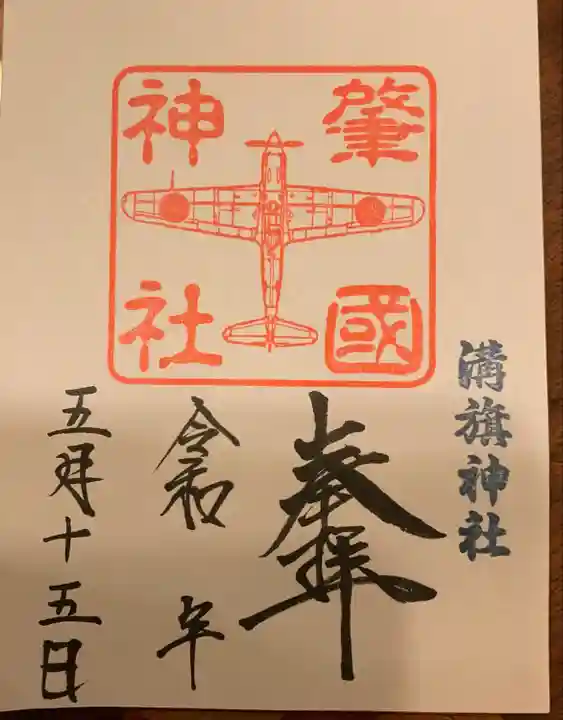 肇國
神社
溝旗神社
奉拝
令和 年
五月十五日